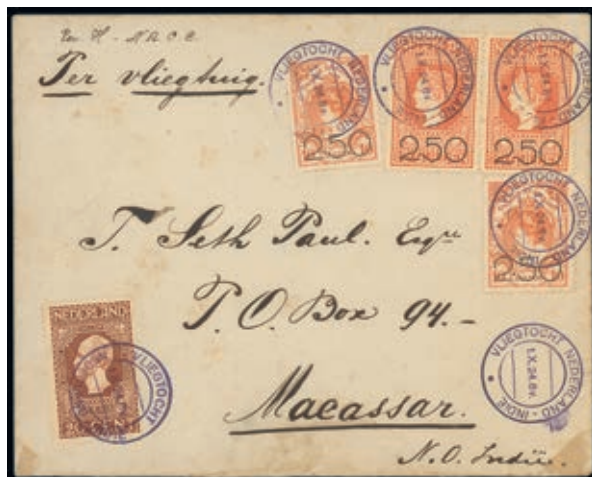 Per H - NACC
Per vliegtuig.
VLIEGTOCHT NEDERLAND - INDIE
250
VLIEGTOCHT NEDERLAND - INDIE
250
VLIEGTOCHT NEDERLAND
250
VLIEGTOCHT NEDERLAND
250
T. Seth Paul. Esqre
P.O. Box 94.-
Macassar.
N.O. Indië.
NEDERLAND
VLIEGTOCHT
INDIE
VLIEGTOCHT NEDERLAND - INDIE
1.X.24.8V.